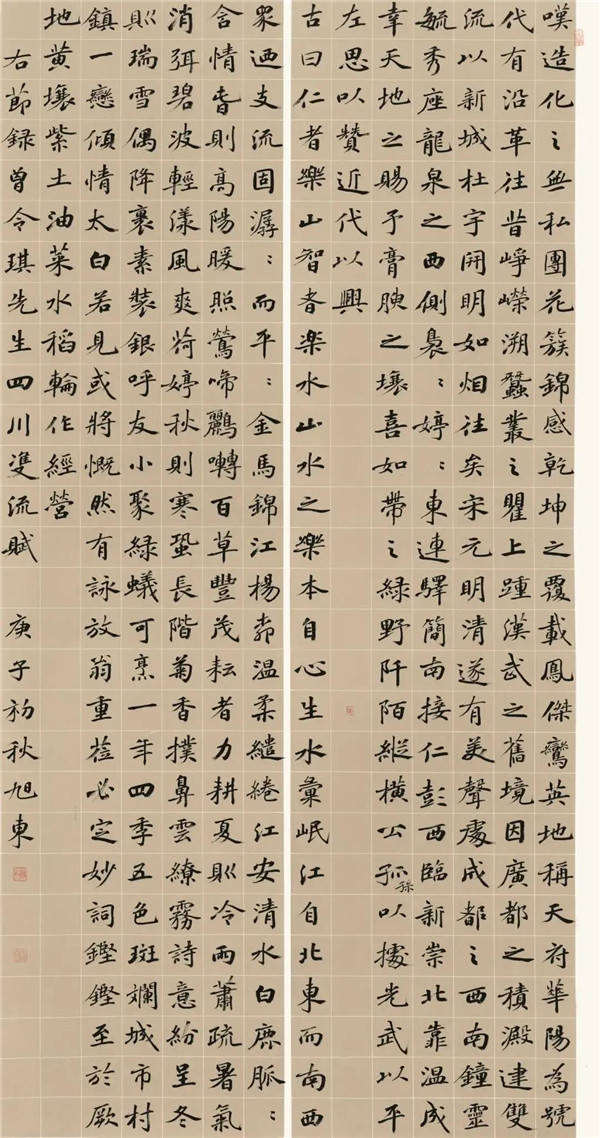 嘆造化之無私團花簇錦感乾坤之覆載鳳傑鸞英地稱天府華陽為號
代有沿革往昔崢嶸溯蠶叢之瞿上踵漢武之舊境因廣都之積澱建雙
流以新城杜宇開明如烟往矣宋元明清遂有美聲處成都之西南鐘靈
毓秀座龍泉之西側裊:婷:東連驛簡南接仁彭西臨新崇北靠温成
幸天地之賜予膏腴之壤喜如帶之綠野阡陌縱橫公孤孫以據光武以平
左思以贊近代以興
古曰仁者樂山智者樂水山水之樂本自心生水彙岷江自北東而南西
眾迺支流固潺:而平:金馬錦江楊温柔繾綣江安清水白鹿脈:
含情春則高陽暖照鶯啼鸝囀百草豐茂耘者力耕夏則冷雨蕭疏暑氣
消弭碧波輕漾風爽荷婷秋則寒蛩長階菊香撲鼻雲繚霧詩意紛呈冬
則瑞雪偶降裹素裝銀呼友小聚綠蟻可烹一年四季五色斑斕城市村
鎮一戀傾情太白若見或將慨然有詠放翁重蒞必定妙詞鏗鏗至於厥
地黃壤紫土油菜水稻輪作經營
右節錄曾令琪先生四川雙流賦 庚子初秋旭東